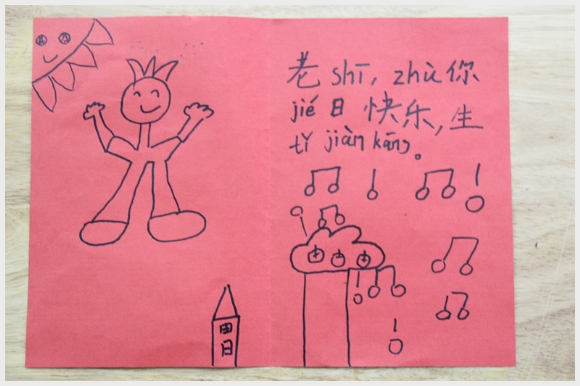 老 shī, zhù 你
jié 日 快乐, 生
tǐ jiàn kāng。